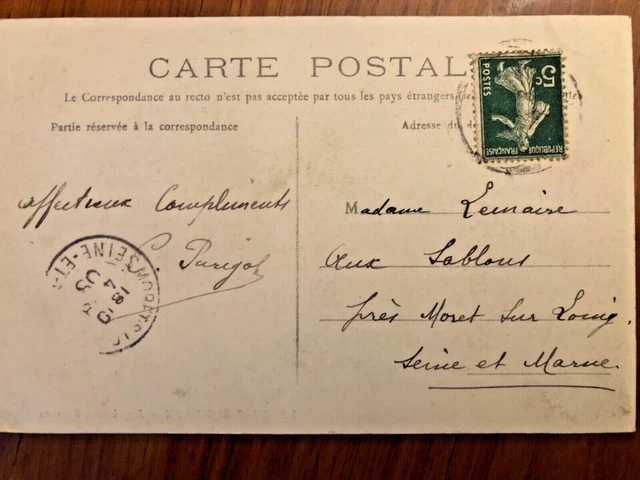 CARTE POSTAL
Le Correspondance au recto n'est pas acceptée par tous les pays étrangers
Partie réservée à la correspondance
Adresse du
5c
POSTES
RÉPUBLIQUE FRANÇAISE
affectueux Compliments
Madame Lemaire
Aux Sablons
près Moret sur Loing
Seine et Marne.
SEINE-ET-